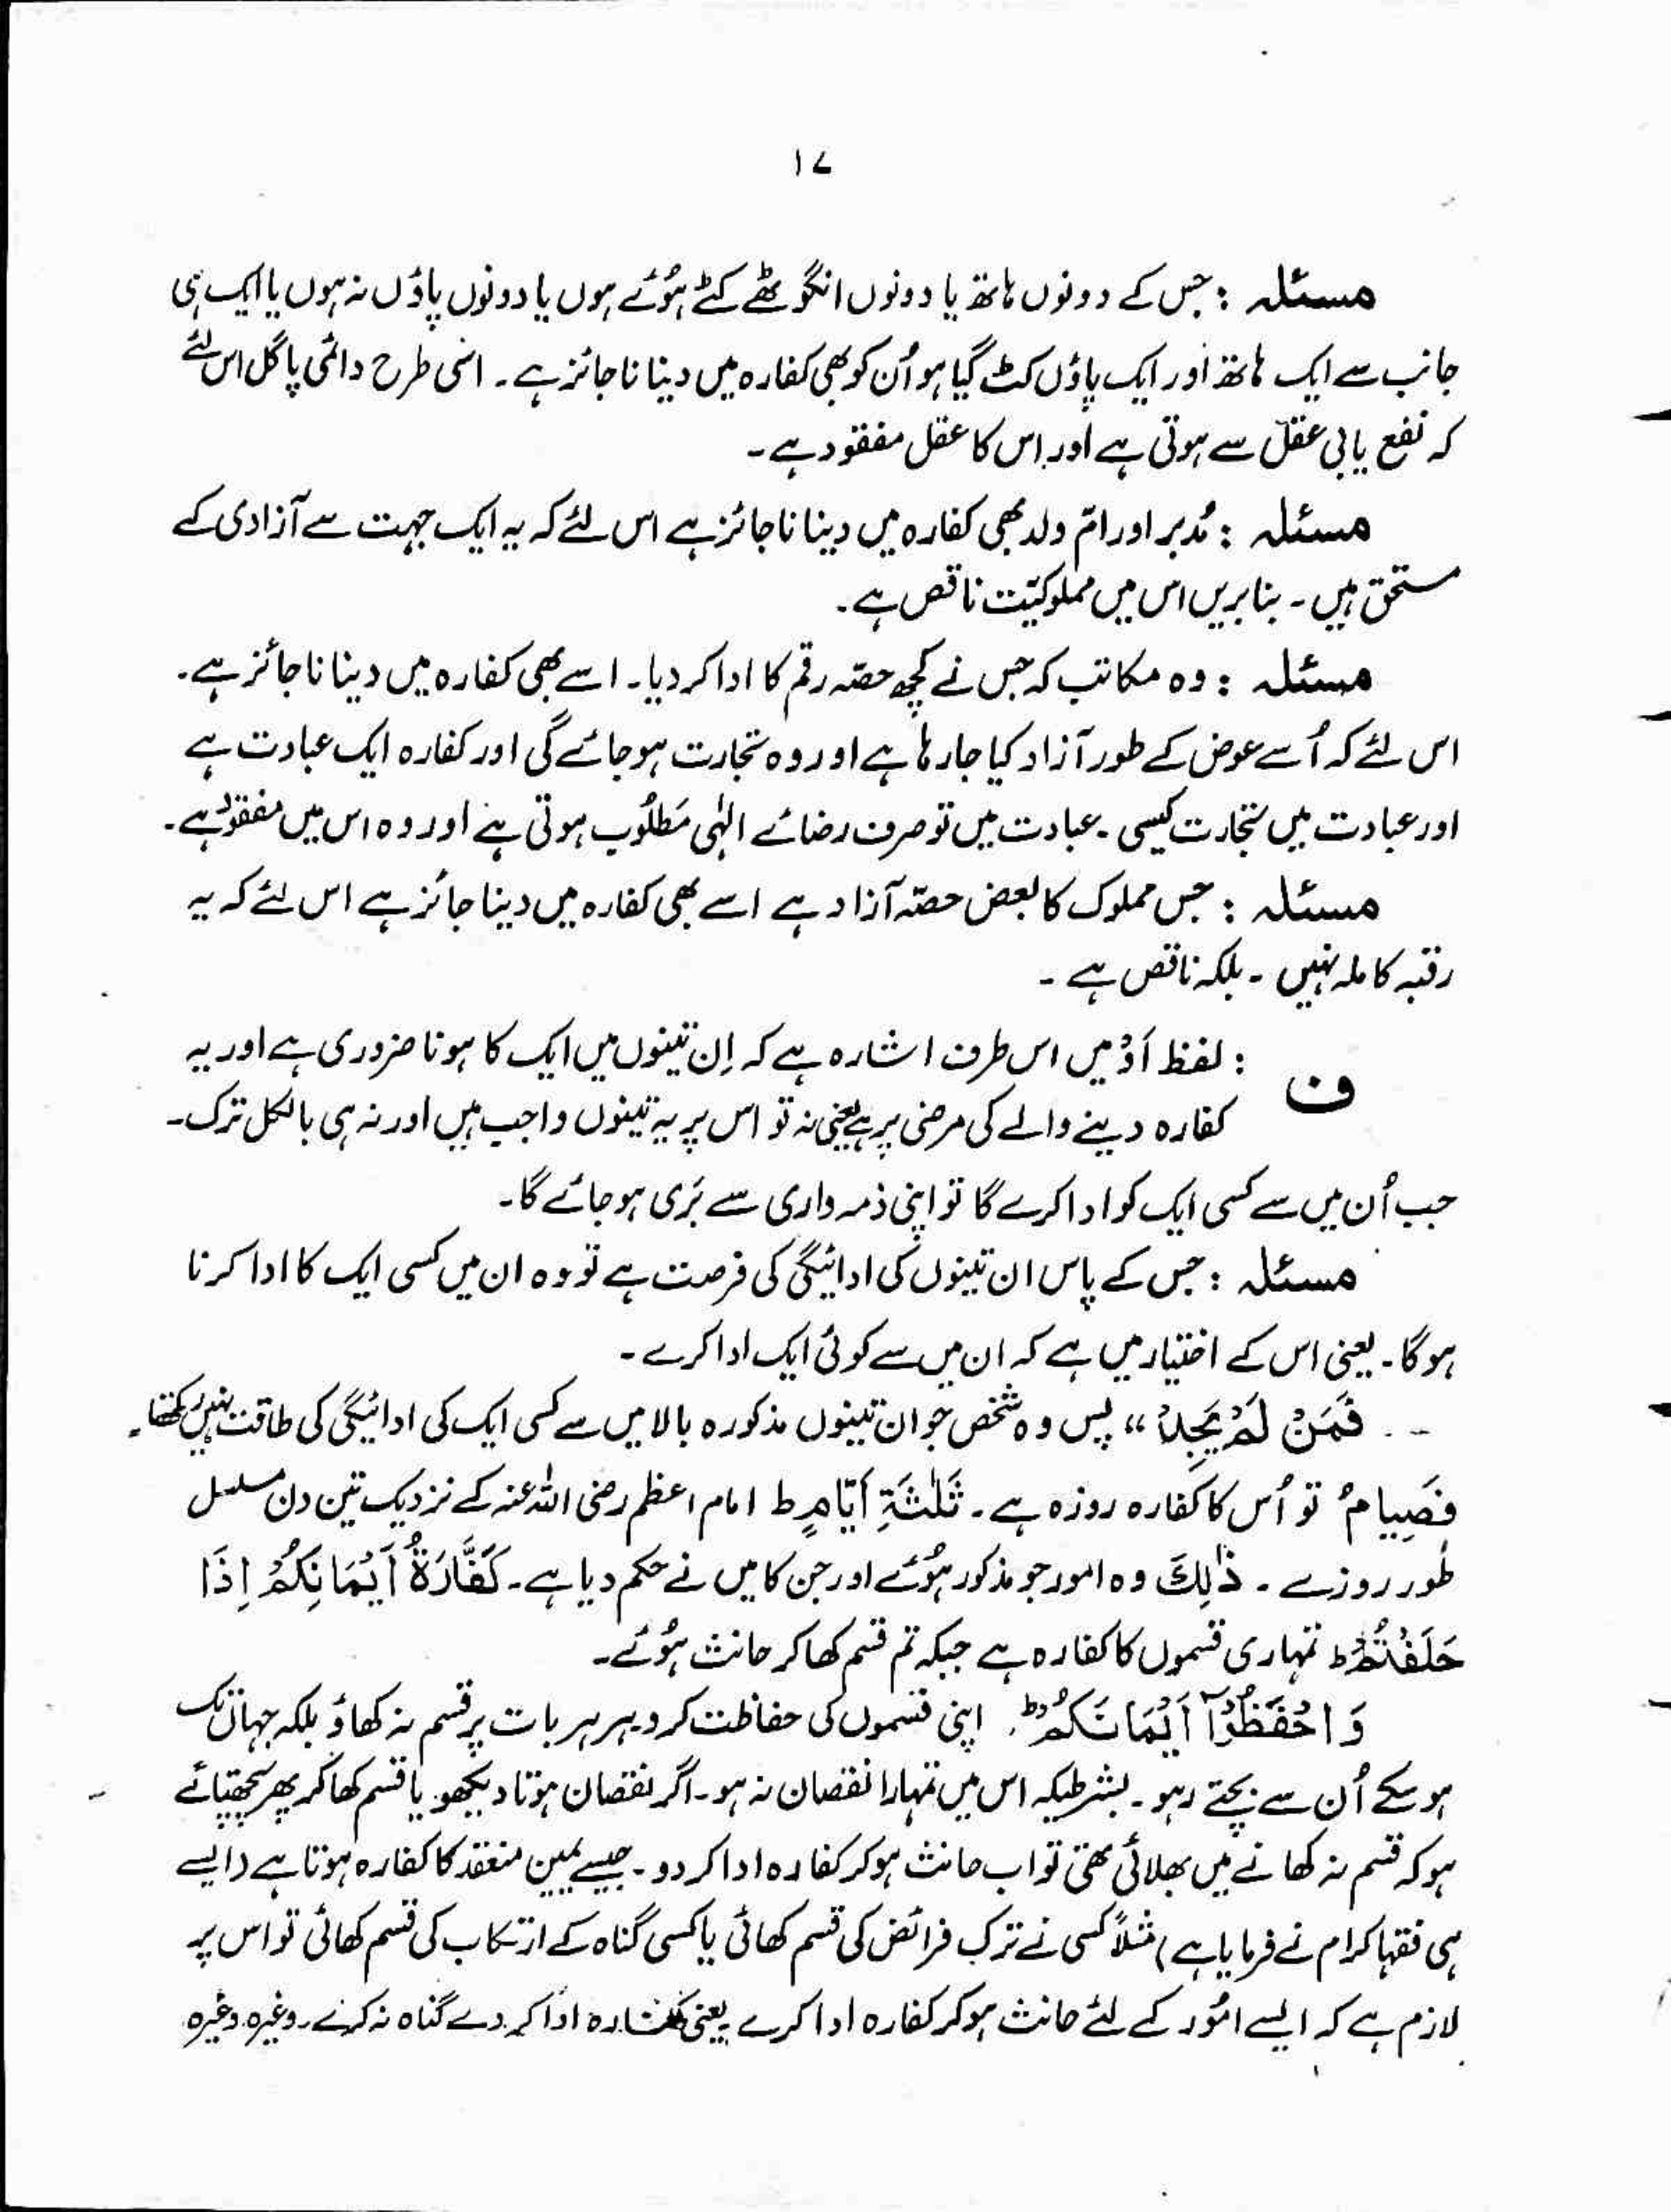 ۱۷
مسئلہ : جس کے دونوں ہاتھ یا دونوں انگوٹھے کٹے ہُوئے ہوں یا دونوں پاؤں نہ ہوں یا ایک ہی
جانب سے ایک ہاتھ اور ایک پاؤں کٹ گیا ہو اُن کو بھی کفارہ میں دینا ناجائز ہے ۔ اسی طرح دائمی پاگل اس لئے
کہ نفع یابی عقل سے ہوتی ہے اور اس کا عقل مفقود ہے ۔
مسئلہ : مُدبر اور امّ ولد بھی کفارہ میں دینا ناجائز ہے اس لئے کہ یہ ایک جہت سے آزادی کے
مستحق ہیں ۔ بنا بریں اس میں مملوکیّت ناقص ہے ۔
مسئلہ : وہ مکاتب کہ جس نے کچھ حصّہ رقم کا ادا کر دیا ۔ اسے بھی کفارہ میں دینا ناجائز ہے ۔
اس لئے کہ اُسے عوض کے طور آزاد کیا جا رہا ہے اور وہ تجارت ہو جائے گی اور کفارہ ایک عبادت ہے
اور عبادت میں تجارت کیسی ۔ عبادت میں تو صرف رضائے الٰہی مَطلُوب ہوتی ہے اور وہ اس میں مفقود ہے ۔
مسئلہ : جس مملوک کا بعض حصّہ آزاد ہے اسے بھی کفارہ میں دینا جائز ہے اس لئے کہ یہ
رقبہ کاملہ نہیں ۔ بلکہ ناقص ہے ۔
ف : لفظ اَوْ میں اس طرف اشارہ ہے کہ اِن تینوں میں ایک کا ہونا ضروری ہے اور یہ
کفارہ دینے والے کی مرضی پر ہے یعنی نہ تو اس پر یہ تینوں واجب ہیں اور نہ ہی بالکل ترک ۔
جب اُن میں سے کسی ایک کو ادا کرے گا تو اپنی ذمہ داری سے بَری ہو جائے گا ۔
مسئلہ : جس کے پاس ان تینوں کی ادائیگی کی فرصت ہے تو وہ ان میں کسی ایک کا ادا کرنا
ہوگا ۔ یعنی اس کے اختیار میں ہے کہ ان میں سے کوئی ایک ادا کرے ۔
فَمَنْ لَمْ یَجِدْ “ پس وہ شخص جو ان تینوں مذکورہ بالا میں سے کسی ایک کی ادائیگی کی طاقت نہیں رکھتا ۔
فَصِیَامُ تو اُس کا کفارہ روزہ ہے ۔ ثَلٰثَۃِ اَیَّامٍ ط امام اعظم رضی اللہ عنہ کے نزدیک تین دن مسلسل
طور روزے ۔ ذٰلِکَ وہ امور جو مذکور ہُوئے اور جن کا میں نے حکم دیا ہے ۔ کَفَّارَۃُ اَیْمَانِکُمْ اِذَا
حَلَفْتُمْ ط تمہاری قسموں کا کفارہ ہے جبکہ تم قسم کھا کر حانث ہُوئے ۔
وَ احْفَظُوْٓا اَیْمَانَکُمْ ط اپنی قسموں کی حفاظت کرو ہر ہر بات پر قسم نہ کھاؤ بلکہ جہاں تک
ہو سکے اُن سے بچتے رہو ۔ بشرطیکہ اس میں تمہارا نقصان نہ ہو ۔ اگر نقصان ہوتا دیکھو یا قسم کھا کر پھر پچھتائے
ہو کہ قسم نہ کھانے میں بھلائی تھی تو اب حانث ہو کر کفارہ ادا کر دو ۔ جیسے یمین منعقد کا کفارہ ہوتا ہے (ایسے
ہی فقہا کرام نے فرمایا ہے) مثلاً کسی نے ترک فرائض کی قسم کھائی یا کسی گناہ کے ارتکاب کی قسم کھائی تو اس پر
لازم ہے کہ ایسے امُور کے لئے حانث ہو کر کفارہ ادا کرے یعنی کفارہ ادا کر دے گناہ نہ کرے ۔ وغیرہ وغیرہ